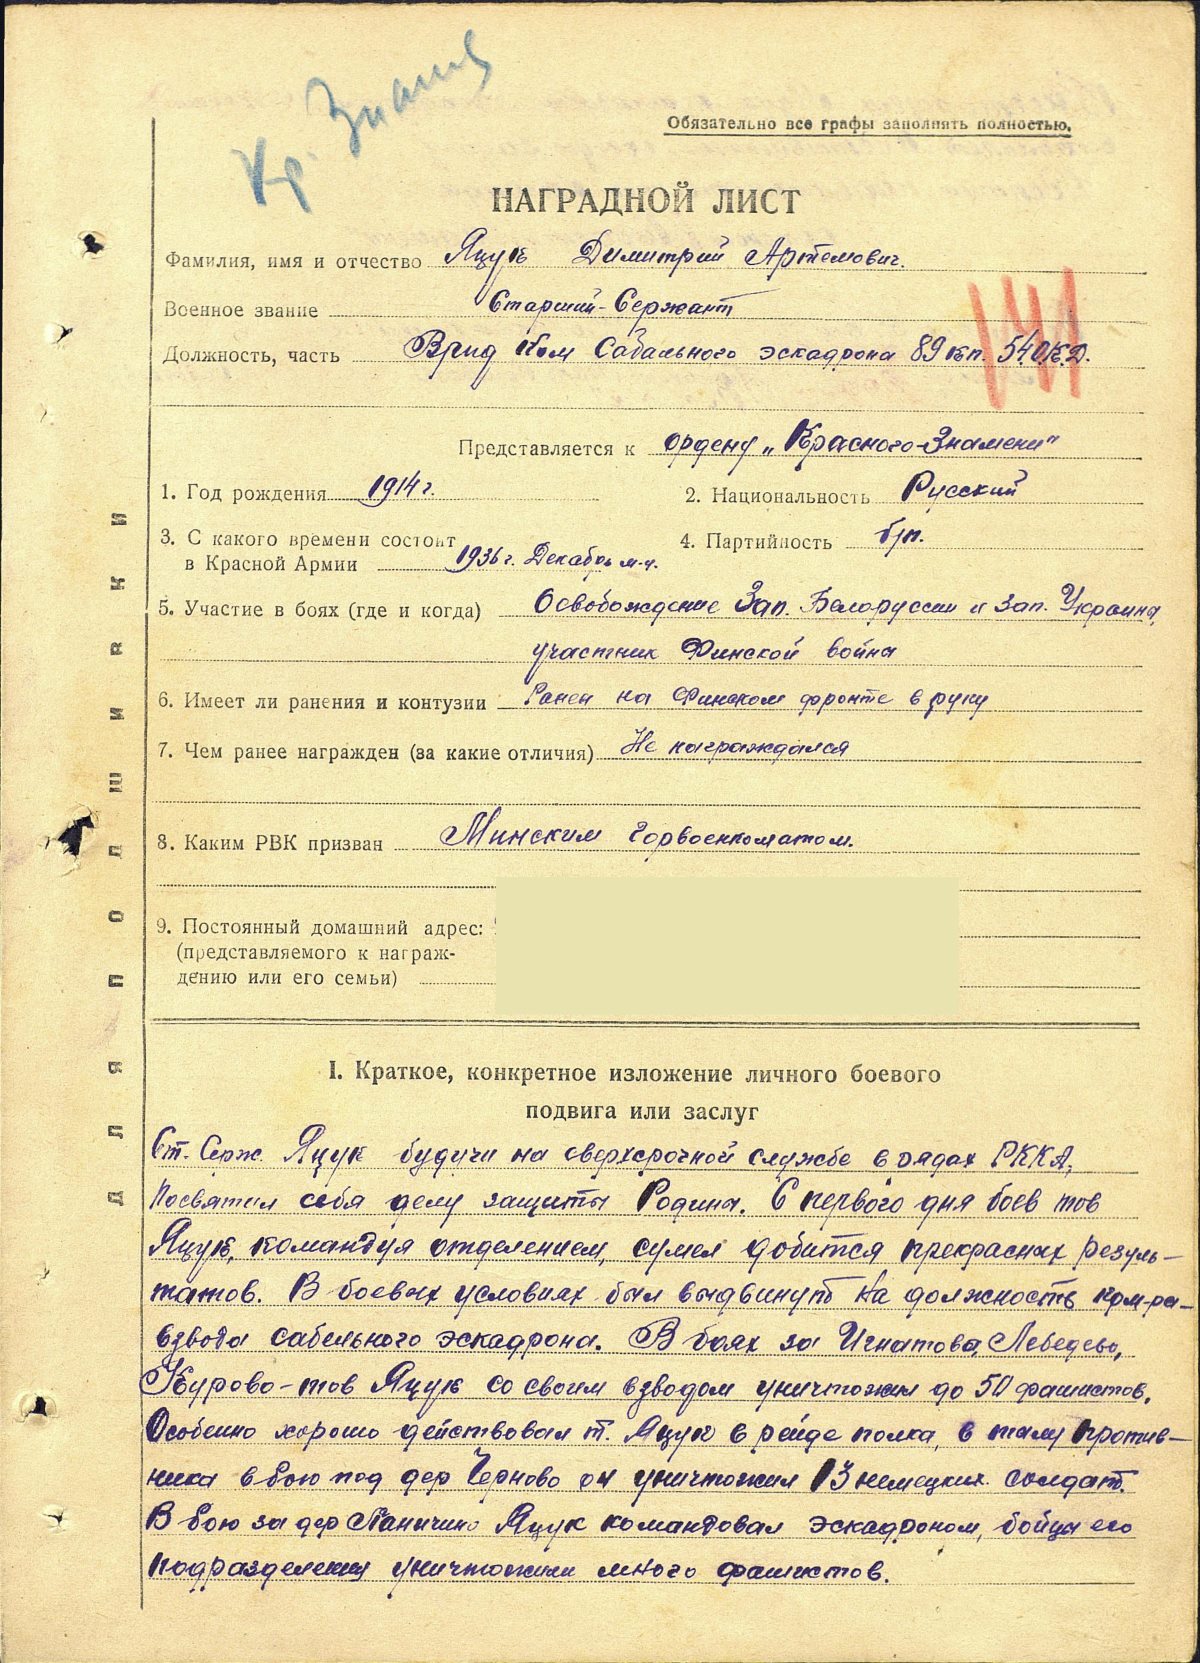 Кр Знамя
Обязательно все графы заполнять полностью.
НАГРАДНОЙ ЛИСТ
Фамилия, имя и отчество Яцук Димитрий Артемович.
Военное звание Старший-Сержант
Должность, часть Врид Ком Сабельного эскадрона 89 кп.
Представляется к ордену „Красного-Знамени"
1. Год рождения 1914 г. 2. Национальность Русский
3. С какого времени состоит 4. Партийность б/п.
в Красной Армии 1936 г. Декабрь м-ц.
5. Участие в боях (где и когда) Освобождение Зап. Белоруссии и Зап. Украина,
участник Финской война
6. Имеет ли ранения и контузии Ранен на Финском фронте в руку
7. Чем ранее награжден (за какие отличия) Не награждался
8. Каким РВК призван Минским Горвоенкоматом.
9. Постоянный домашний адрес:
(представляемого к награж-
дению или его семьи)
I. Краткое, конкретное изложение личного боевого
подвига или заслуг
Ст. Серж. Яцук будучи на сверхсрочной службе в рядах РККА,
Посвятил себя делу защиты Родина. С первого дня боев тов
Яцук, командуя отделением, сумел добится прекрасных резуль-
татов. В боевых условиях был выдвинут на должность ком-ра
взвода сабельного эскадрона. В боях за Игнатово, Лебедево,
Курово-тов Яцук со своим взводом уничтожил до 50 фашистов.
Особенно хорошо действовал т. Яцук в рейде полка, в тылу против-
ника в бою под дер Черново он уничтожил 13 немецких солдат.
В бою за дер Паничино Яцук командовал эскадроном, бойцы его
подразделения уничтожили много фашистов.
ДЛЯ ПОДШИВКИ